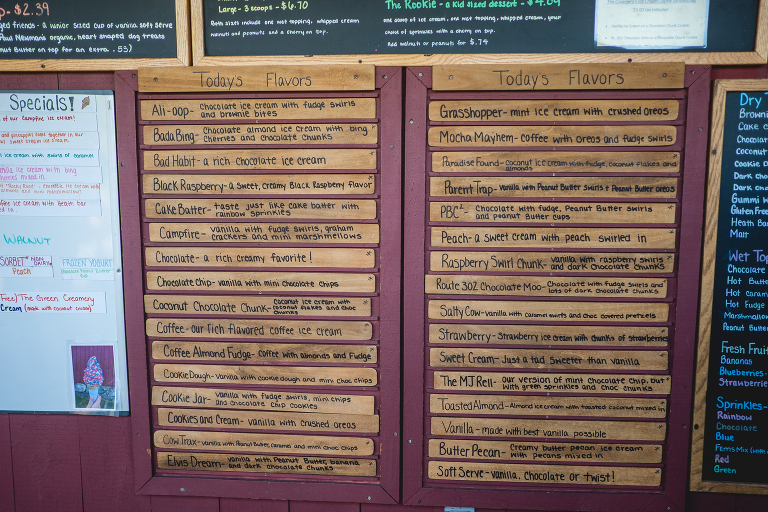 $2.39
Large - 3 scoops - $6.70
Both sizes include one wet topping, whipped cream
The Rookie - a kid sized dessert - $4.09
one scoop of ice cream, one wet topping, whipped cream, your
choice of sprinkles with a cherry on top.
Add walnuts or peanuts for $.74
friends - a junior sized cup of vanilla soft serve
Paul Newman's organic, heart shaped dog treats
nut Butter on top for an extra .53)
Specials!
of our Campfire ice cream!
WALNUT
SORBET
Peach
FROZEN YOGURT
Free/The Green Creamery
Cream (made with coconut cream)
Today's Flavors
Ali-oop- Chocolate ice cream with fudge swirls
and brownie bites
Bada Bing- Chocolate almond ice cream with bing
cherries and chocolate chunks
Bad Habit- a rich chocolate ice cream
Black Raspberry- a sweet, creamy Black Raspberry flavor
Cake Batter- taste just like cake batter with
rainbow sprinkles
Campfire- vanilla with fudge swirls, graham
crackers and mini marshmellows
Chocolate- a rich creamy favorite!
Chocolate Chip- vanilla with mini chocolate chips
Coconut Chocolate Chunk- coconut ice cream with
coconut flakes and choc
chunks
Coffee- our rich flavored coffee ice cream
Coffee Almond Fudge- coffee with almonds and fudge
Cookie Dough- vanilla with cookie dough and mini choc chips
Cookie Jar- vanilla with fudge swirls, mini chips
and chocolate chip cookies
Cookies and Cream- vanilla with crushed oreos
Cow Trax- vanilla with Peanut Butter, caramel and mini choc chips
Elvis Dream- vanilla with Peanut Butter, banana
and dark chocolate chunks
Today's Flavors
Grasshopper- mint ice cream with crushed oreos
Mocha Mayhem- coffee with oreos and fudge swirls
Paradise Found- coconut ice cream with fudge, coconut flakes and
almonds
Parent Trap- vanilla with Peanut Butter swirls & Peanut Butter oreos
PBC²- Chocolate with fudge, Peanut Butter swirls
and peanut butter cups
Peach- a sweet cream with peach swirled in
Raspberry Swirl Chunk- vanilla with raspberry swirls
and dark chocolate chunks
Route 302 Chocolate Moo- Chocolate with fudge swirls and
lots of dark chocolate chunks
Salty Cow- vanilla with caramel swirls and choc covered pretzels
Strawberry- Strawberry ice cream with chunks of strawberries
Sweet Cream- Just a tad sweeter than vanilla
The MJ Rell- our version of mint chocolate chip, but
with green sprinkles and choc chunks
Toasted Almond- Almond ice cream with toasted coconut mixed in
Vanilla- made with best vanilla possible
Butter Pecan- Creamy butter pecan ice cream
with pecans mixed in
Soft Serve- vanilla, chocolate or twist!
Dry T
Browni
Cake C
Chocola
Coconut
Cookie D
Dark choc
Dark cho
Gummi W
Gluten Free
Heath Ba
Malt
Wet Top
Chocolate
Hot caram
Hot Fudge
Marshmallow
Peanut Butter
Fresh Fruit
Bananas
Blueberries-
Strawberries
Sprinkles-
Rainbow
Chocolate
Blue
Red
Green